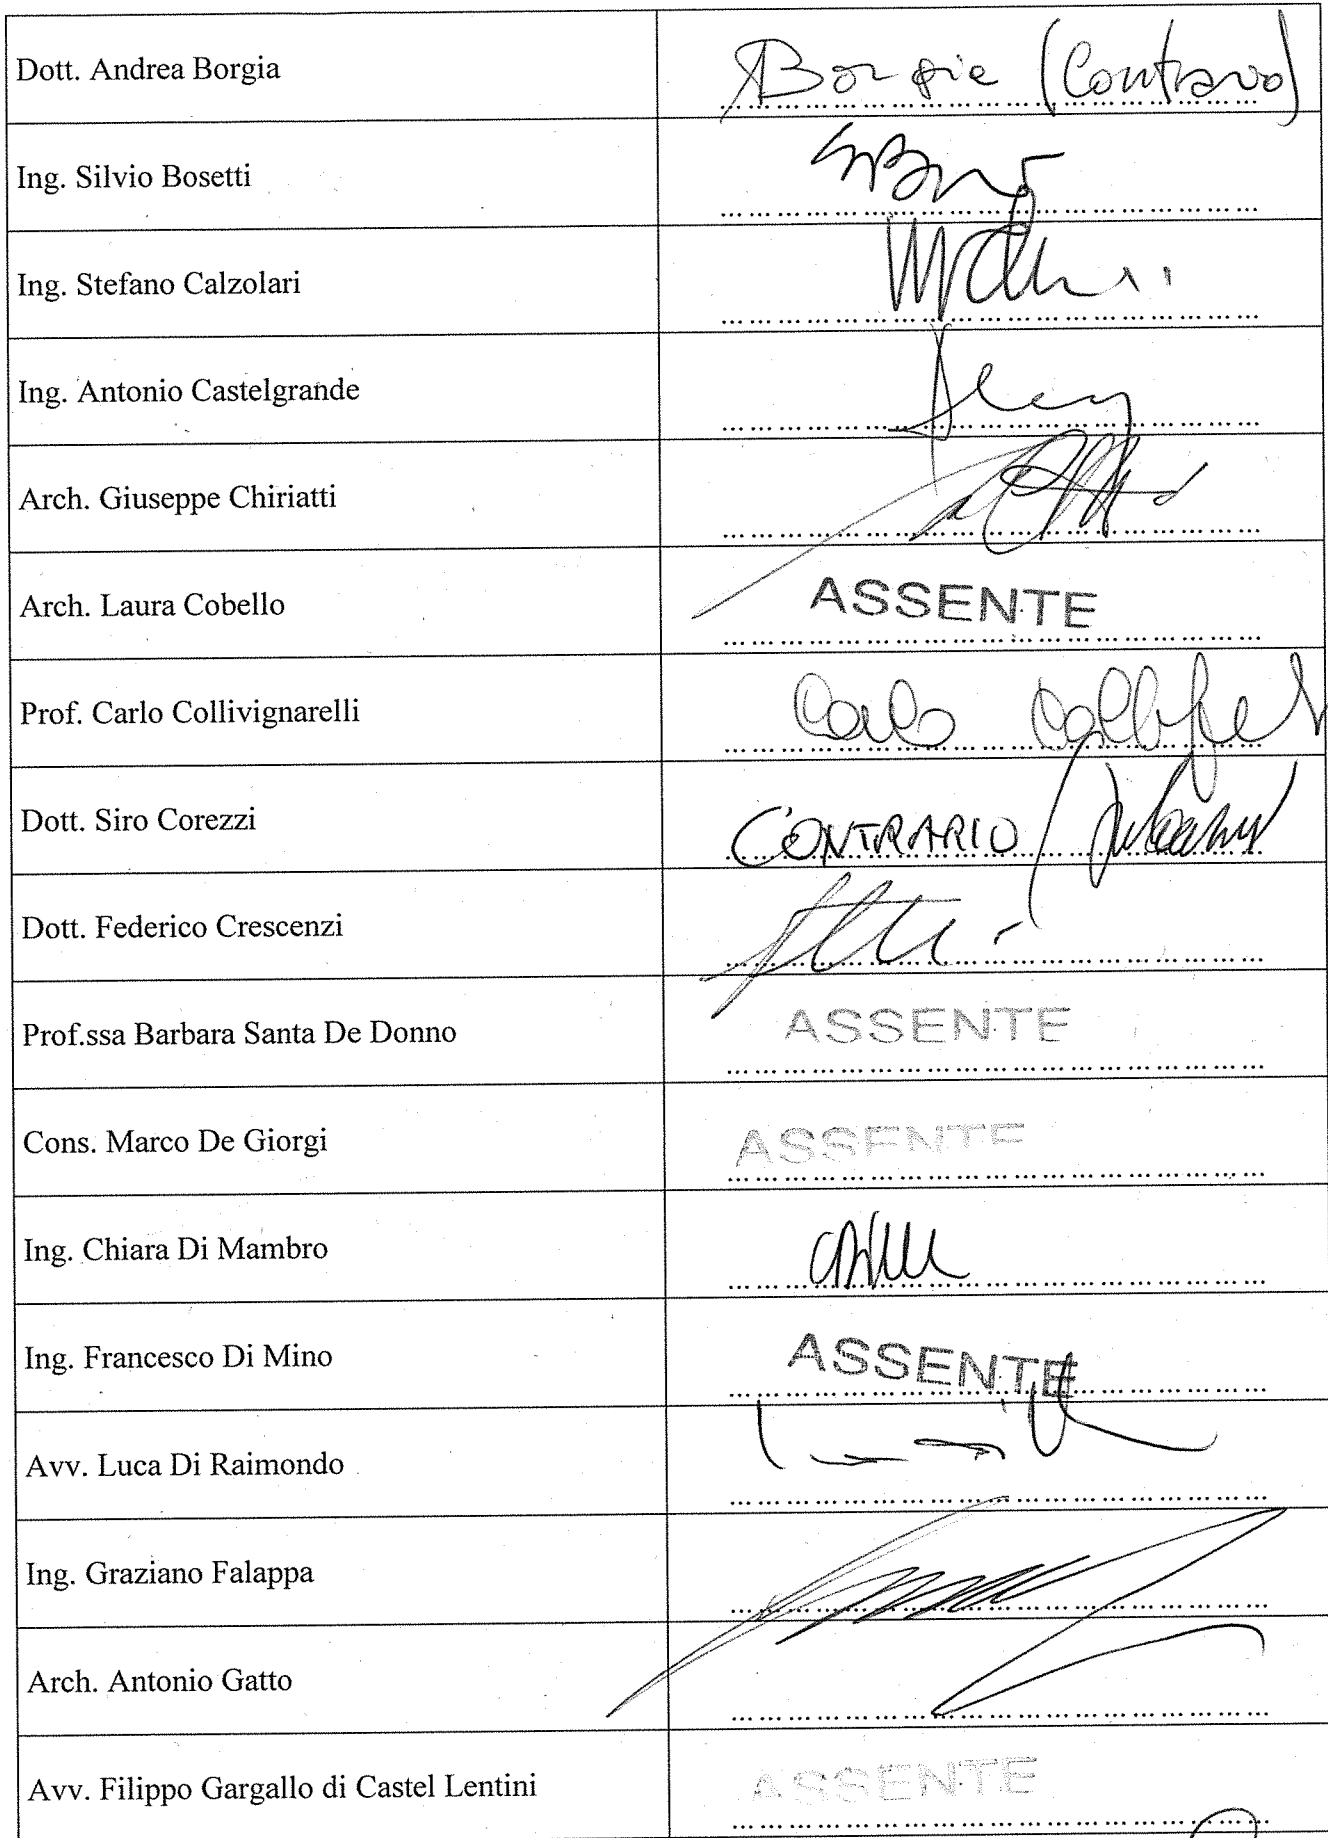 Dott. Andrea Borgia Borgia (Contrario)
Ing. Silvio Bosetti
Ing. Stefano Calzolari
Ing. Antonio Castelgrande
Arch. Giuseppe Chiriatti
Arch. Laura Cobello ASSENTE
Prof. Carlo Collivignarelli Carlo
Dott. Siro Corezzi CONTRARIO
Dott. Federico Crescenzi
Prof.ssa Barbara Santa De Donno ASSENTE
Cons. Marco De Giorgi ASSENTE
Ing. Chiara Di Mambro
Ing. Francesco Di Mino ASSENTE
Avv. Luca Di Raimondo
Ing. Graziano Falappa
Arch. Antonio Gatto
Avv. Filippo Gargallo di Castel Lentini ASSENTE